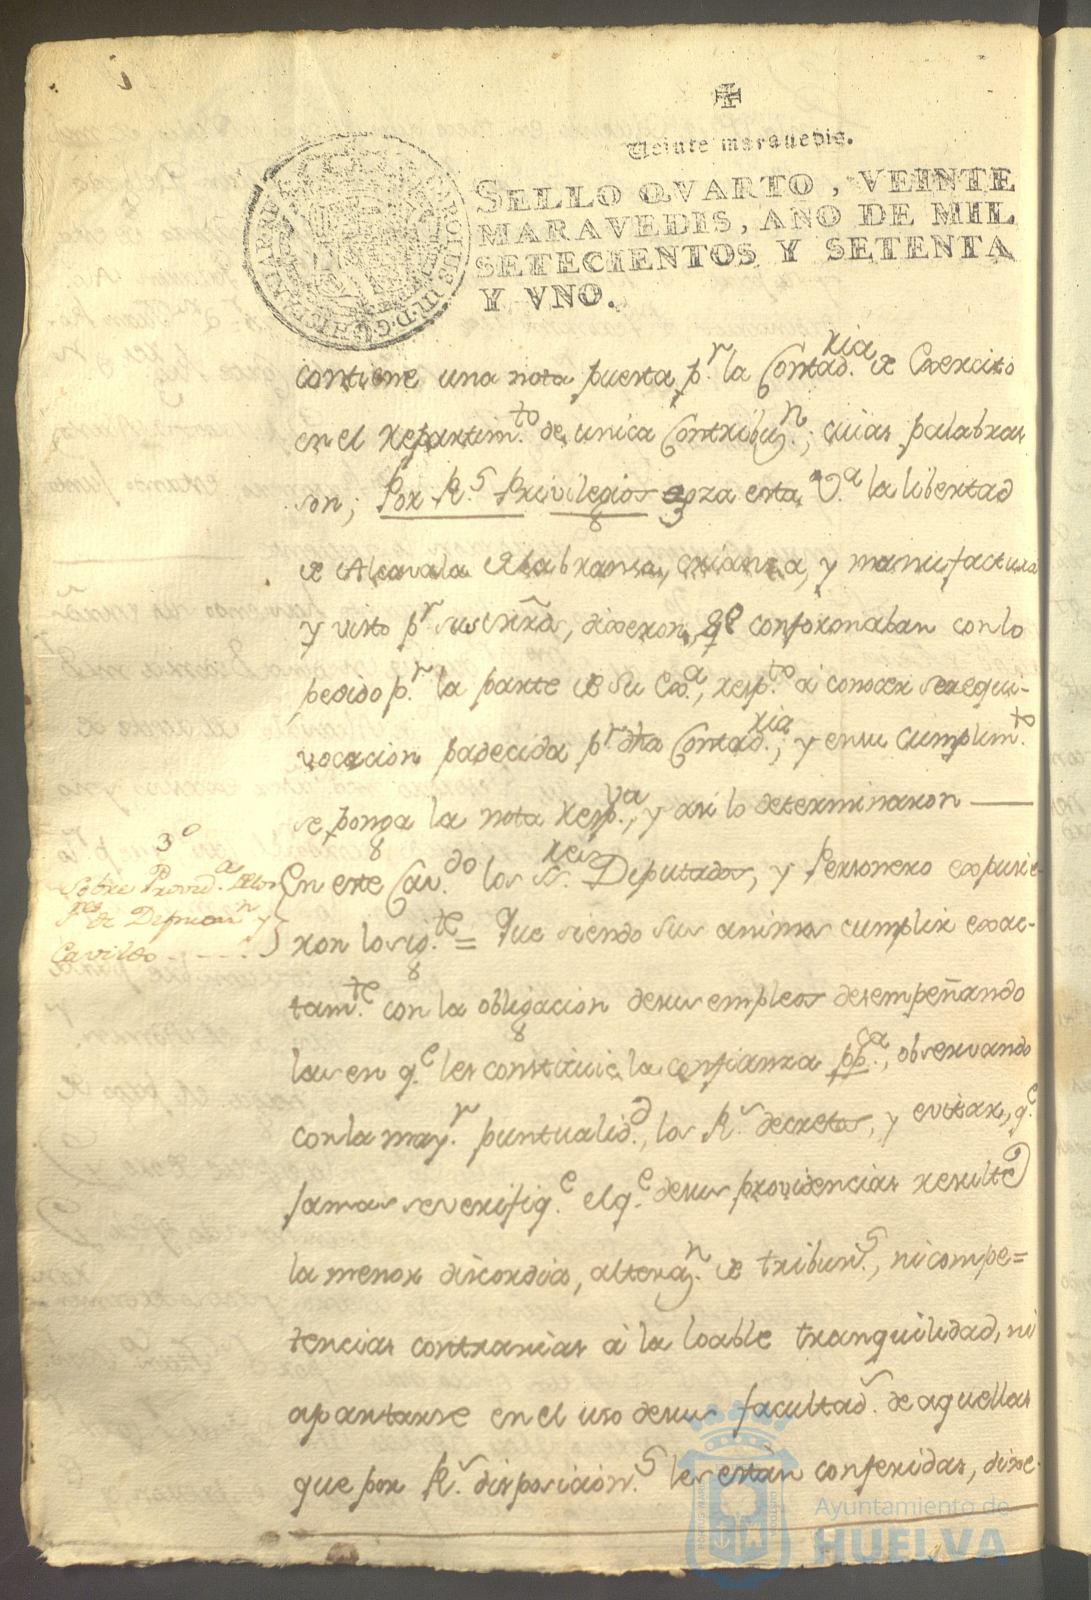 ✠
Veinte maravedis.
SELLO QVARTO, VEINTE
MARAVEDIS, AÑO DE MIL
SETECIENTOS Y SETENTA
Y VNO.
contiene una nota puesta p.r la Contad.ria de Exercito
en el repartim.to de unica Contribuz.n; cuias palabras
son; Por R.s Privilegios goza esta V.a la libertad
de Alcavala labranza, crianza, y manifactura
y visto p.r sus mrds, dixeron, q.e conformaban con lo
pedido p.r la parte de Su Ex.a, resp.to a conocer ser equi-
vocacion padecida p.r dha Contad.ria; y en su cumplim.to
se ponga la nota resp.va, y asi lo determinaron
3º
Sobre Provid.a
de Diputaz.n y
Cavildo
En este Cav.do los S.res Deputados, y Personero expusie-
ron lo sig.te = Que siendo sus animos cumplir exac-
tam.te con la obligacion desus empleos desempeñando
las en q.e les constituie la confianza pp.ca, observando
con la may.r puntualid.d, los R.s decretos, y evitar, q.e
jamas severifiq.e el q.e desus providencias resulte
la menor discordia, alteraz.n de tribun.s, ni compe=
tencias contrarias á la loable tranquilidad, ni
apartarse en el uso desus facultad.s de aquellas
que por R.s disposicion.s les están conferidas, dixe-
Ayuntamiento de
HUELVA